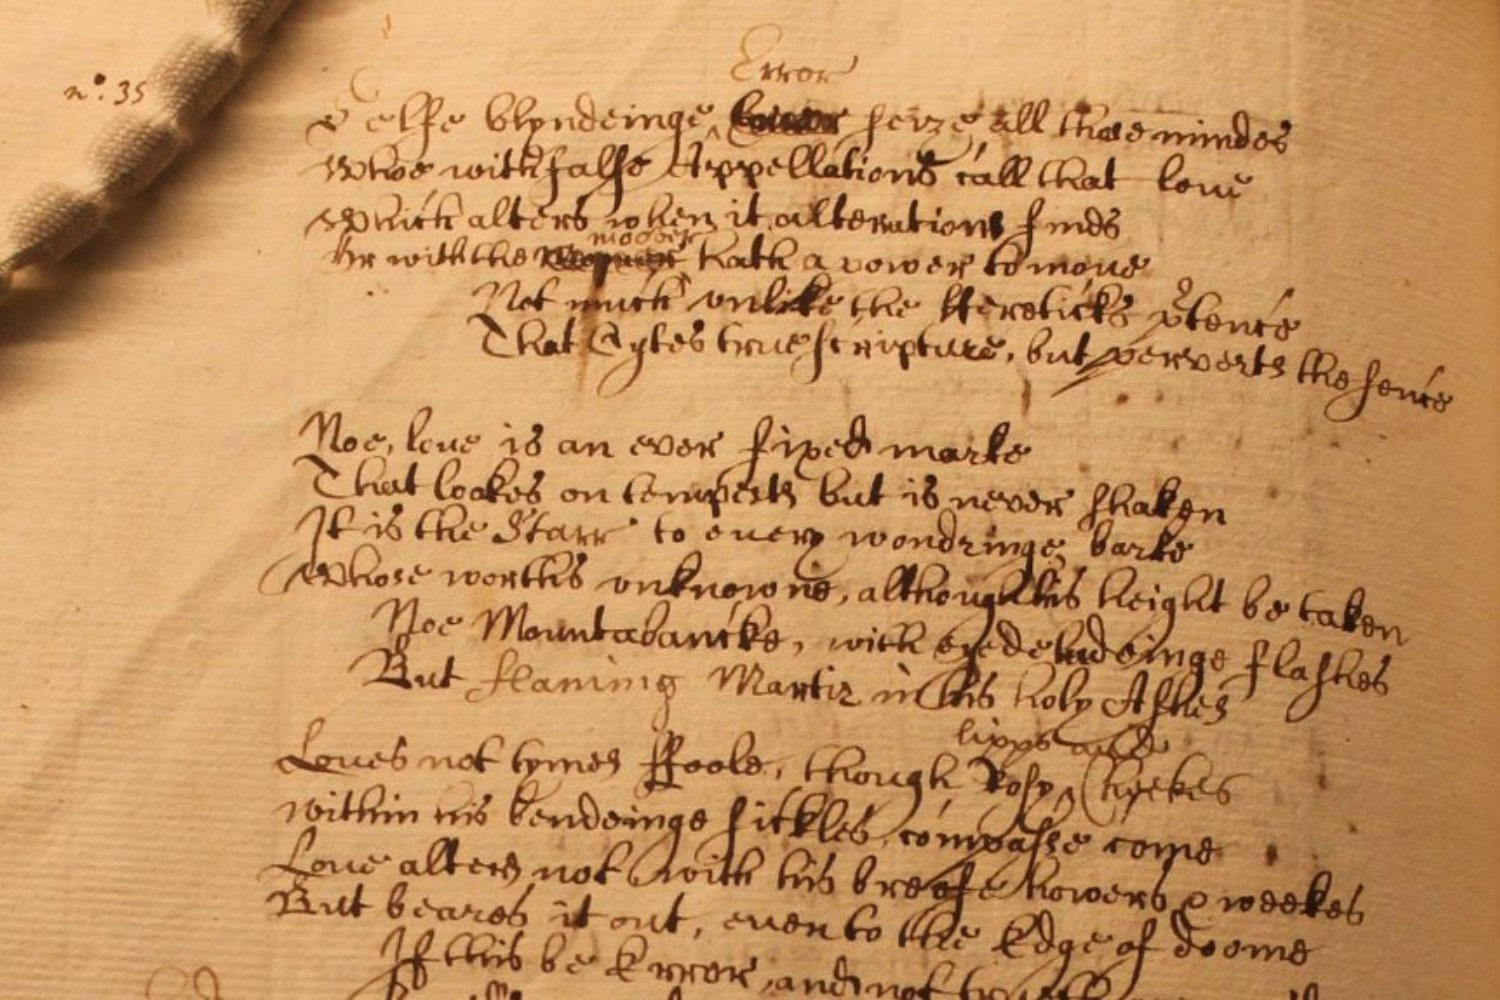 n°. 35
Error
Selfe blyndeinge seize all those mindes
Whoe with false Appellations call that loue
Which alters when it alterations finds
moover
Or with the hath a power to moue
Not much vnlike the Hereticks p̃tence
That Cytes true scripture, but perverts the sence
Noe, loue is an ever fixed marke
That lookes on tempests but is never shaken
It is the Starr to euery wondringe barke
Whose worth's vnknowne, although his height be taken
Noe Mountabancke, with eye deludeinge flashes
But flaming Martir in his holy Ashes
lipps and
Loues not tymes ffoole, though Rosy Cheekes
within his bendeinge sickles compasse come
Loue alters not with his breefe howers & weekes
But beares it out, euen to the Edge of doome
If this be Error, and not